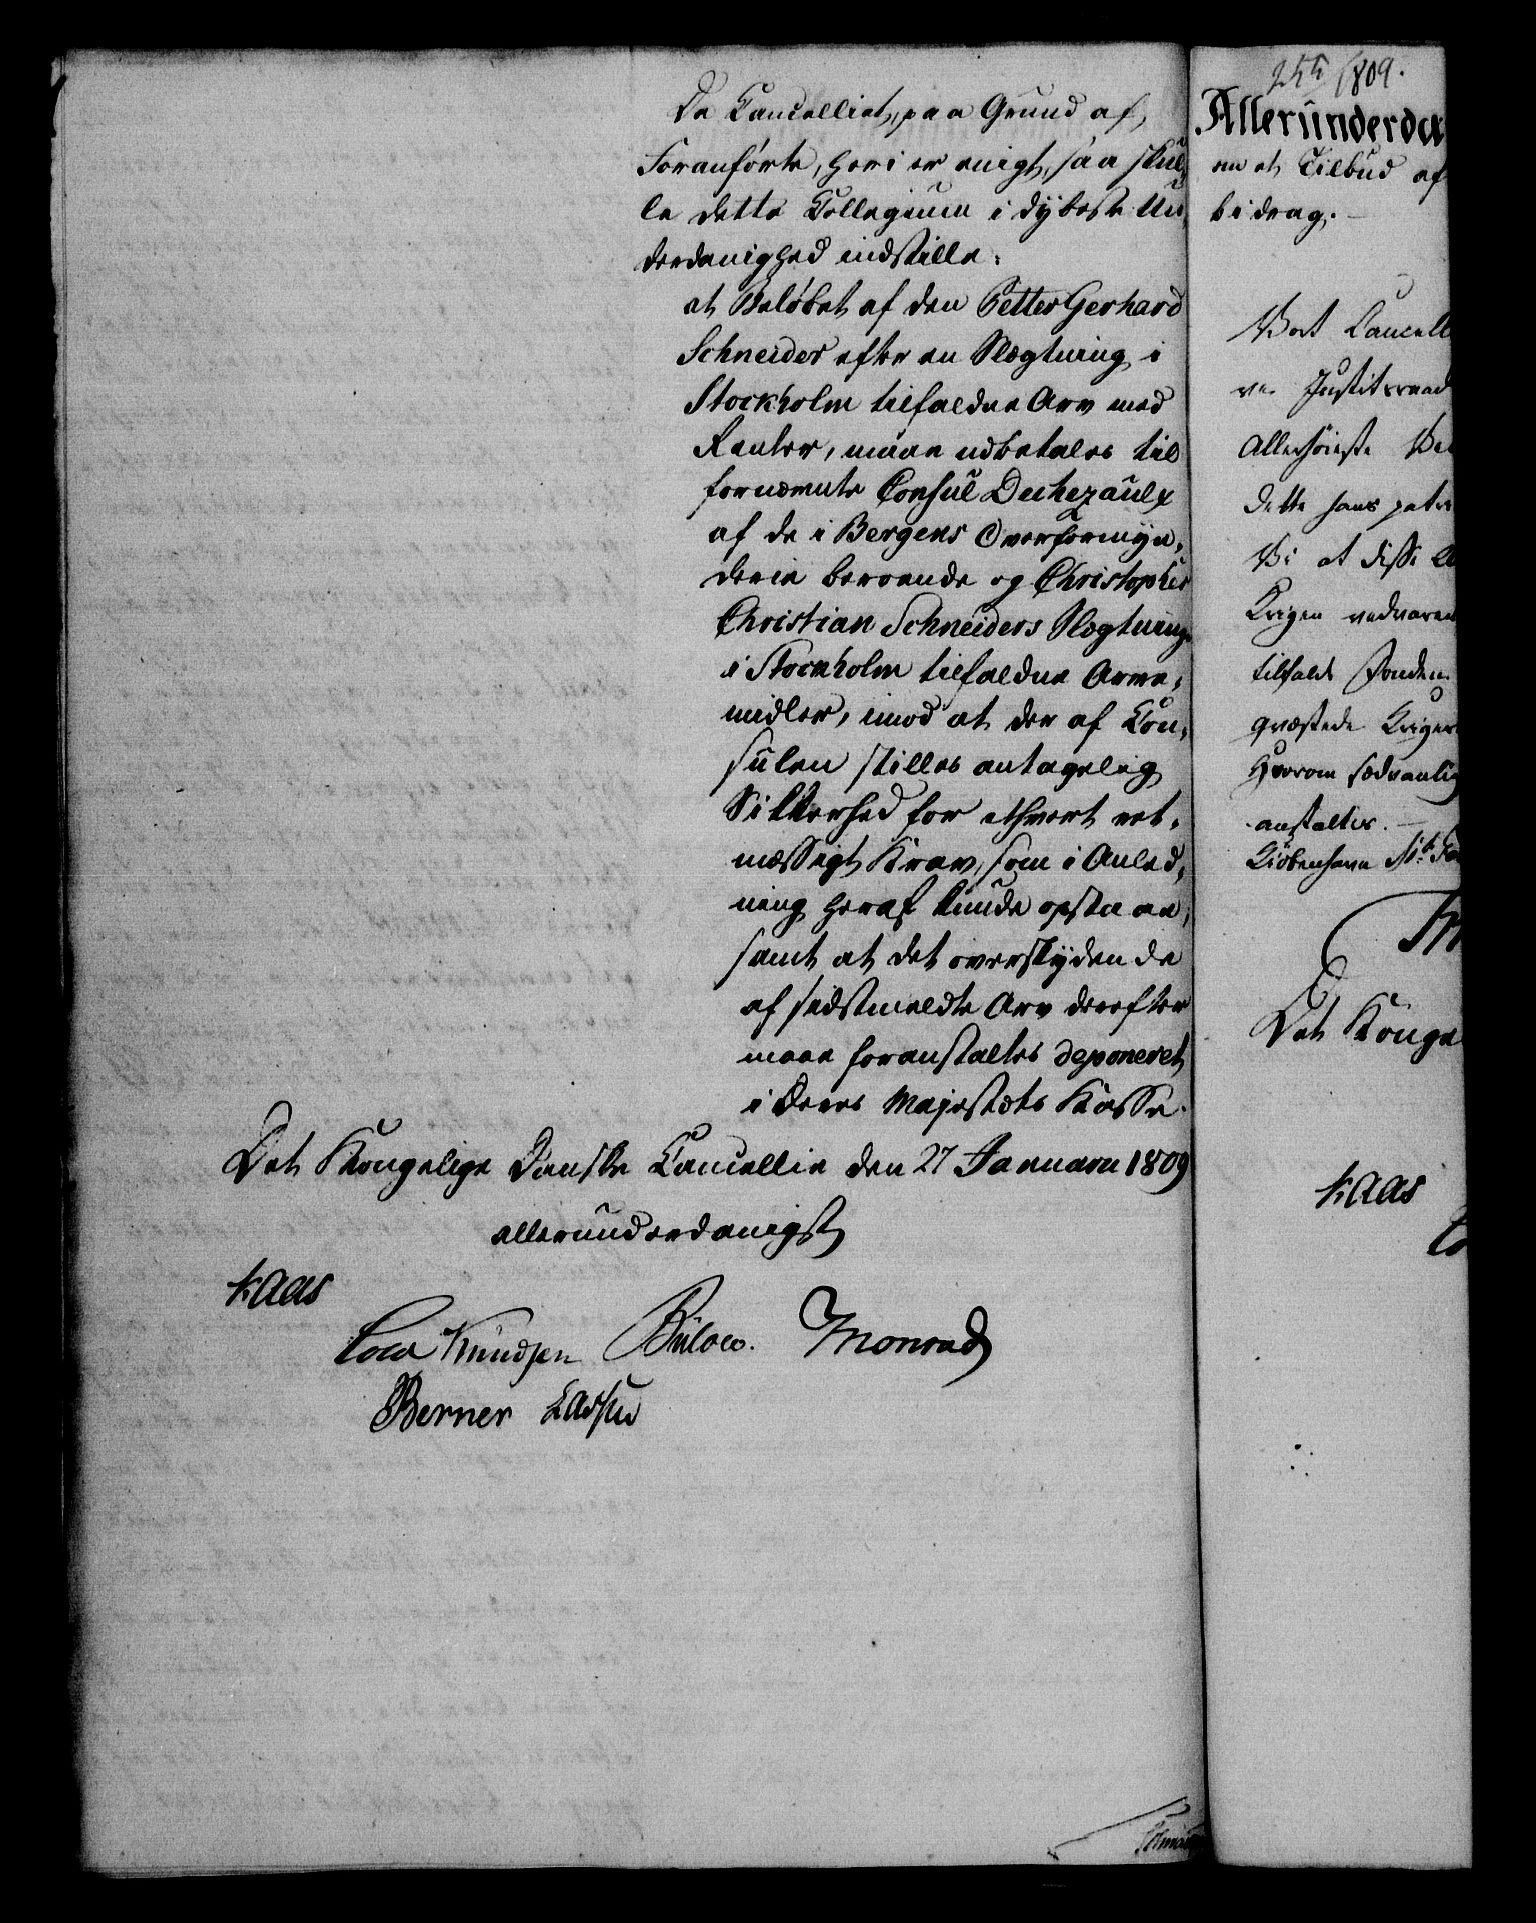 Da Cancelliet, paa Grund af
Foranførte, heri er enigt, saa skul-
le dette Collegium i dybeste Un-
derdanighed indstille:
at Beløbet af den Petter Gerhard
Schneider efter en Slægtning i
Stockholm tilfaldne Arv med
Renter, maae udbetales til
fornævnte Consul Dechezaulx
af de i Bergens Overformyn-
derie beroende og Christopher
Christian Schneiders Slægtninge
i Stockholm tilfaldne Arve-
midler, imod at der af Con-
sulen stilles antagelig
Sikkerhed for ethvert ret-
mæssigt Krav, som i Anled-
ning heraf kunde opstaae,
samt at det overskydende
af sidstmeldte Arv derefter
maae foranstaltes deponeret
i Deres Majestæts Kasse.
Det Kongelige Danske Cancellie den 27 Januarii 1809
allerunderdanigst
Kaas
Cold Knudsen Bülow. Monrad
Berner Lassen
255 1809.
Allerunderda
om et Tilbud af
bidrag.
Vort Cancell
ve Justitsraad
Allerhøieste
dette hans patri
Vi at disse
Krigen vedvaren
tilfalde Fonden
qvæstede Kriger
Hvorom sædvanlig
anstaltes.
Kiøbenhavn
Det Konge
Kaas